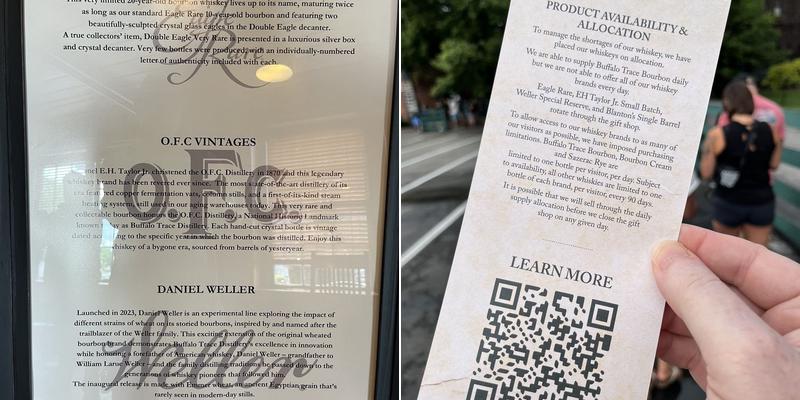 This very limited 20-year-old bourbon whiskey lives up to its name, maturing twice
as long as our standard Eagle Rare 10-year-old bourbon and featuring two
beautifully-sculpted crystal glass eagles in the Double Eagle decanter.
A true collectors' item, Double Eagle Very Rare is presented in a luxurious silver box
and crystal decanter. Very few bottles were produced with an individually-numbered
letter of authenticity included with each.
Rare
O.F.C VINTAGES
O.F.C.
E.H. Taylor Jr. christened the O.F.C. Distillery in 1870 and this legendary
whiskey brand has been revered ever since. The most state-of-the-art distillery of its
featured copper fermentation vats, column stills, and a first-of-its-kind steam
heating system still used in our warehouses today. This very rare and
collectable bourbon the O.F.C. Distillery, a National Historic Landmark
known today as Buffalo Trace Distillery. Each hand-cut crystal bottle is vintage
dated according to the specific year in which the bourbon was distilled. Enjoy this
whiskey of a bygone era, sourced from barrels of yesteryear.
DANIEL WELLER
Weller
Launched in 2023, Daniel Weller is an experimental line exploring the impact of
different strains of wheat in its storied bourbons, inspired by and named after the
trailblazer of the Weller family. This exciting extension of the original wheated
bourbon brand demonstrates Buffalo Trace Distillery's excellence in innovation
while honoring a forefather of American whiskey. Daniel Weller – grandfather to
William Larue Weller – and the family distilling traditions he passed down to the
generations of whiskey pioneers that followed him.
The inaugural release is made with Emmer wheat, an ancient Egyptian grain that's
rarely seen in modern-day stills.
PRODUCT AVAILABILITY &
ALLOCATION
To manage the shortages of our whiskey, we have
placed our whiskeys on allocation.
We are able to supply Buffalo Trace Bourbon daily
but we are not able to offer all of our whiskey
brands every day.
Eagle Rare, EH Taylor Jr. Small Batch,
Weller Special Reserve, and Blanton's Single Barrel
rotate through the gift shop.
To allow access to our whiskey brands to as many of
our visitors as possible, we have imposed purchasing
limitations. Buffalo Trace Bourbon, Bourbon Cream
and Sazerac Rye are
limited to one bottle per visitor, per day. Subject
to availability, all other whiskies are limited to one
bottle of each brand, per visitor, every 90 days.
It is possible that we will sell through the daily
supply allocation before we close the gift
shop on any given day.
LEARN MORE